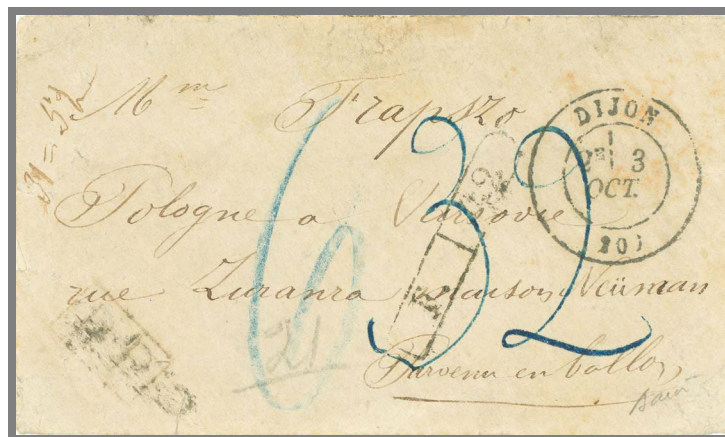 Mme Frapszo
DIJON
2E 3
OCT.
20)
Pologne a Varsovie
rue Zuranra maison Neüman
6
32
21
Parvenu en ballon